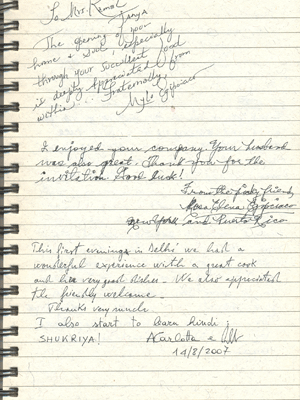 To Mrs. Kamal
Tanya
The opening of your
home & soul, especially
through your succulent food
is deeply appreciated from
within... Fraternally,
I enjoyed your company. Your husband
was also great. Thank you for the
invitation. Good luck!
From the friend,
Rosa Elena
New York and Puerto Rico
This first evening in Delhi we had a
wonderful experience with a great cook
and her very good dishes. We also appreciated
the friendly welcome.
Thanks very much
I also start to learn hindi :
SHUKRIYA! Carlotta e
14/8/2007